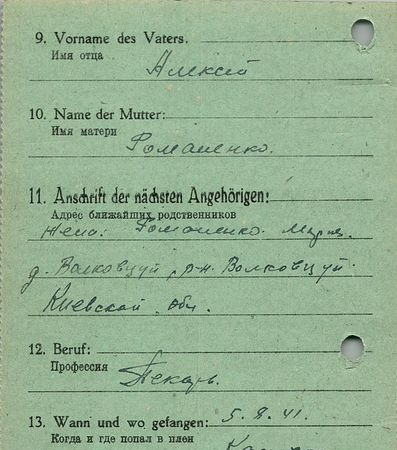 9. Vorname des Vaters.
Имя отца
Алексей
10. Name der Mutter:
Имя матери
Романенко.
11. Anschrift der nächsten Angehörigen:
Адрес ближайших родственников
Жена: Романенко
д. Волковцуй, р-н. Волковцуй
Киевской обл.
12. Beruf:
Профессия
Пекарь.
13. Wann und wo gefangen: 5.8.41.
Когда и где попал в плен